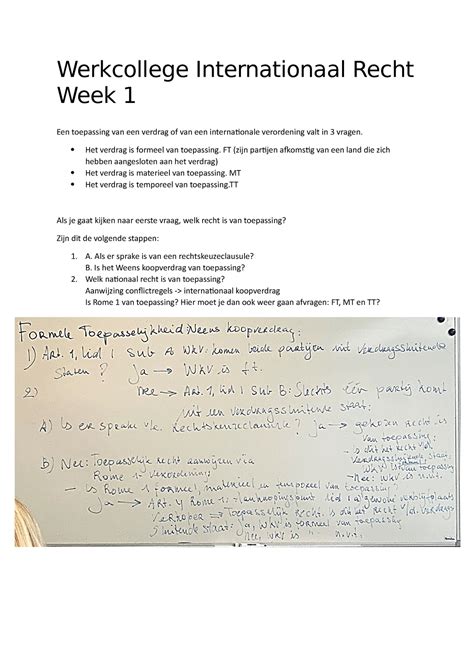 Werkcollege Internationaal Recht
Week 1
Een toepassing van een verdrag of van een internationale verordening valt in 3 vragen.
• Het verdrag is formeel van toepassing. FT (zijn partijen afkomstig van een land die zich
hebben aangesloten aan het verdrag)
• Het verdrag is materieel van toepassing. MT
• Het verdrag is temporeel van toepassing.TT
Als je gaat kijken naar eerste vraag, welk recht is van toepassing?
Zijn dit de volgende stappen:
1. A. Als er sprake is van een rechtskeuzeclausule?
B. Is het Weens koopverdrag van toepassing?
2. Welk nationaal recht is van toepassing?
Aanwijzing conflictregels -> internationaal koopverdrag
Is Rome 1 van toepassing? Hier moet je dan ook weer gaan afvragen: FT, MT en TT?
Formele Toepasselijkheid Weens koopverdrag:
1) Art. 1, lid 1 sub A WKV: komen beide partijen uit verdragssluitende
Staten? Ja → WKV is f.t.
2) Nee → Art. 1, lid 1 sub B: Slechts één partij komt
uit een verdragssluitende staat:
A) Is er sprake v.e. rechtskeuzeclausule? Ja → gekozen recht is
van toepassing:
is dit het recht v/d
verdragssluitende staat:
WKV is van toepassing
Nee: WKV is n.v.t.
B) Nee: Toepasselijk recht aanwijzen via
Rome 1-Verordening:
- Is Rome 1 formeel, materieel en temporeel van toepassing?
Ja → Art. 4 Rome 1: Aanknopingspunt lid 1 a gewone verblijfplaats
Verkoper → Toepasselijk Recht. Is dit het recht v/d. verdrags
sluitende staat: Ja, WKV is formeel van toepassing
Nee, WKV is " n.v.t.